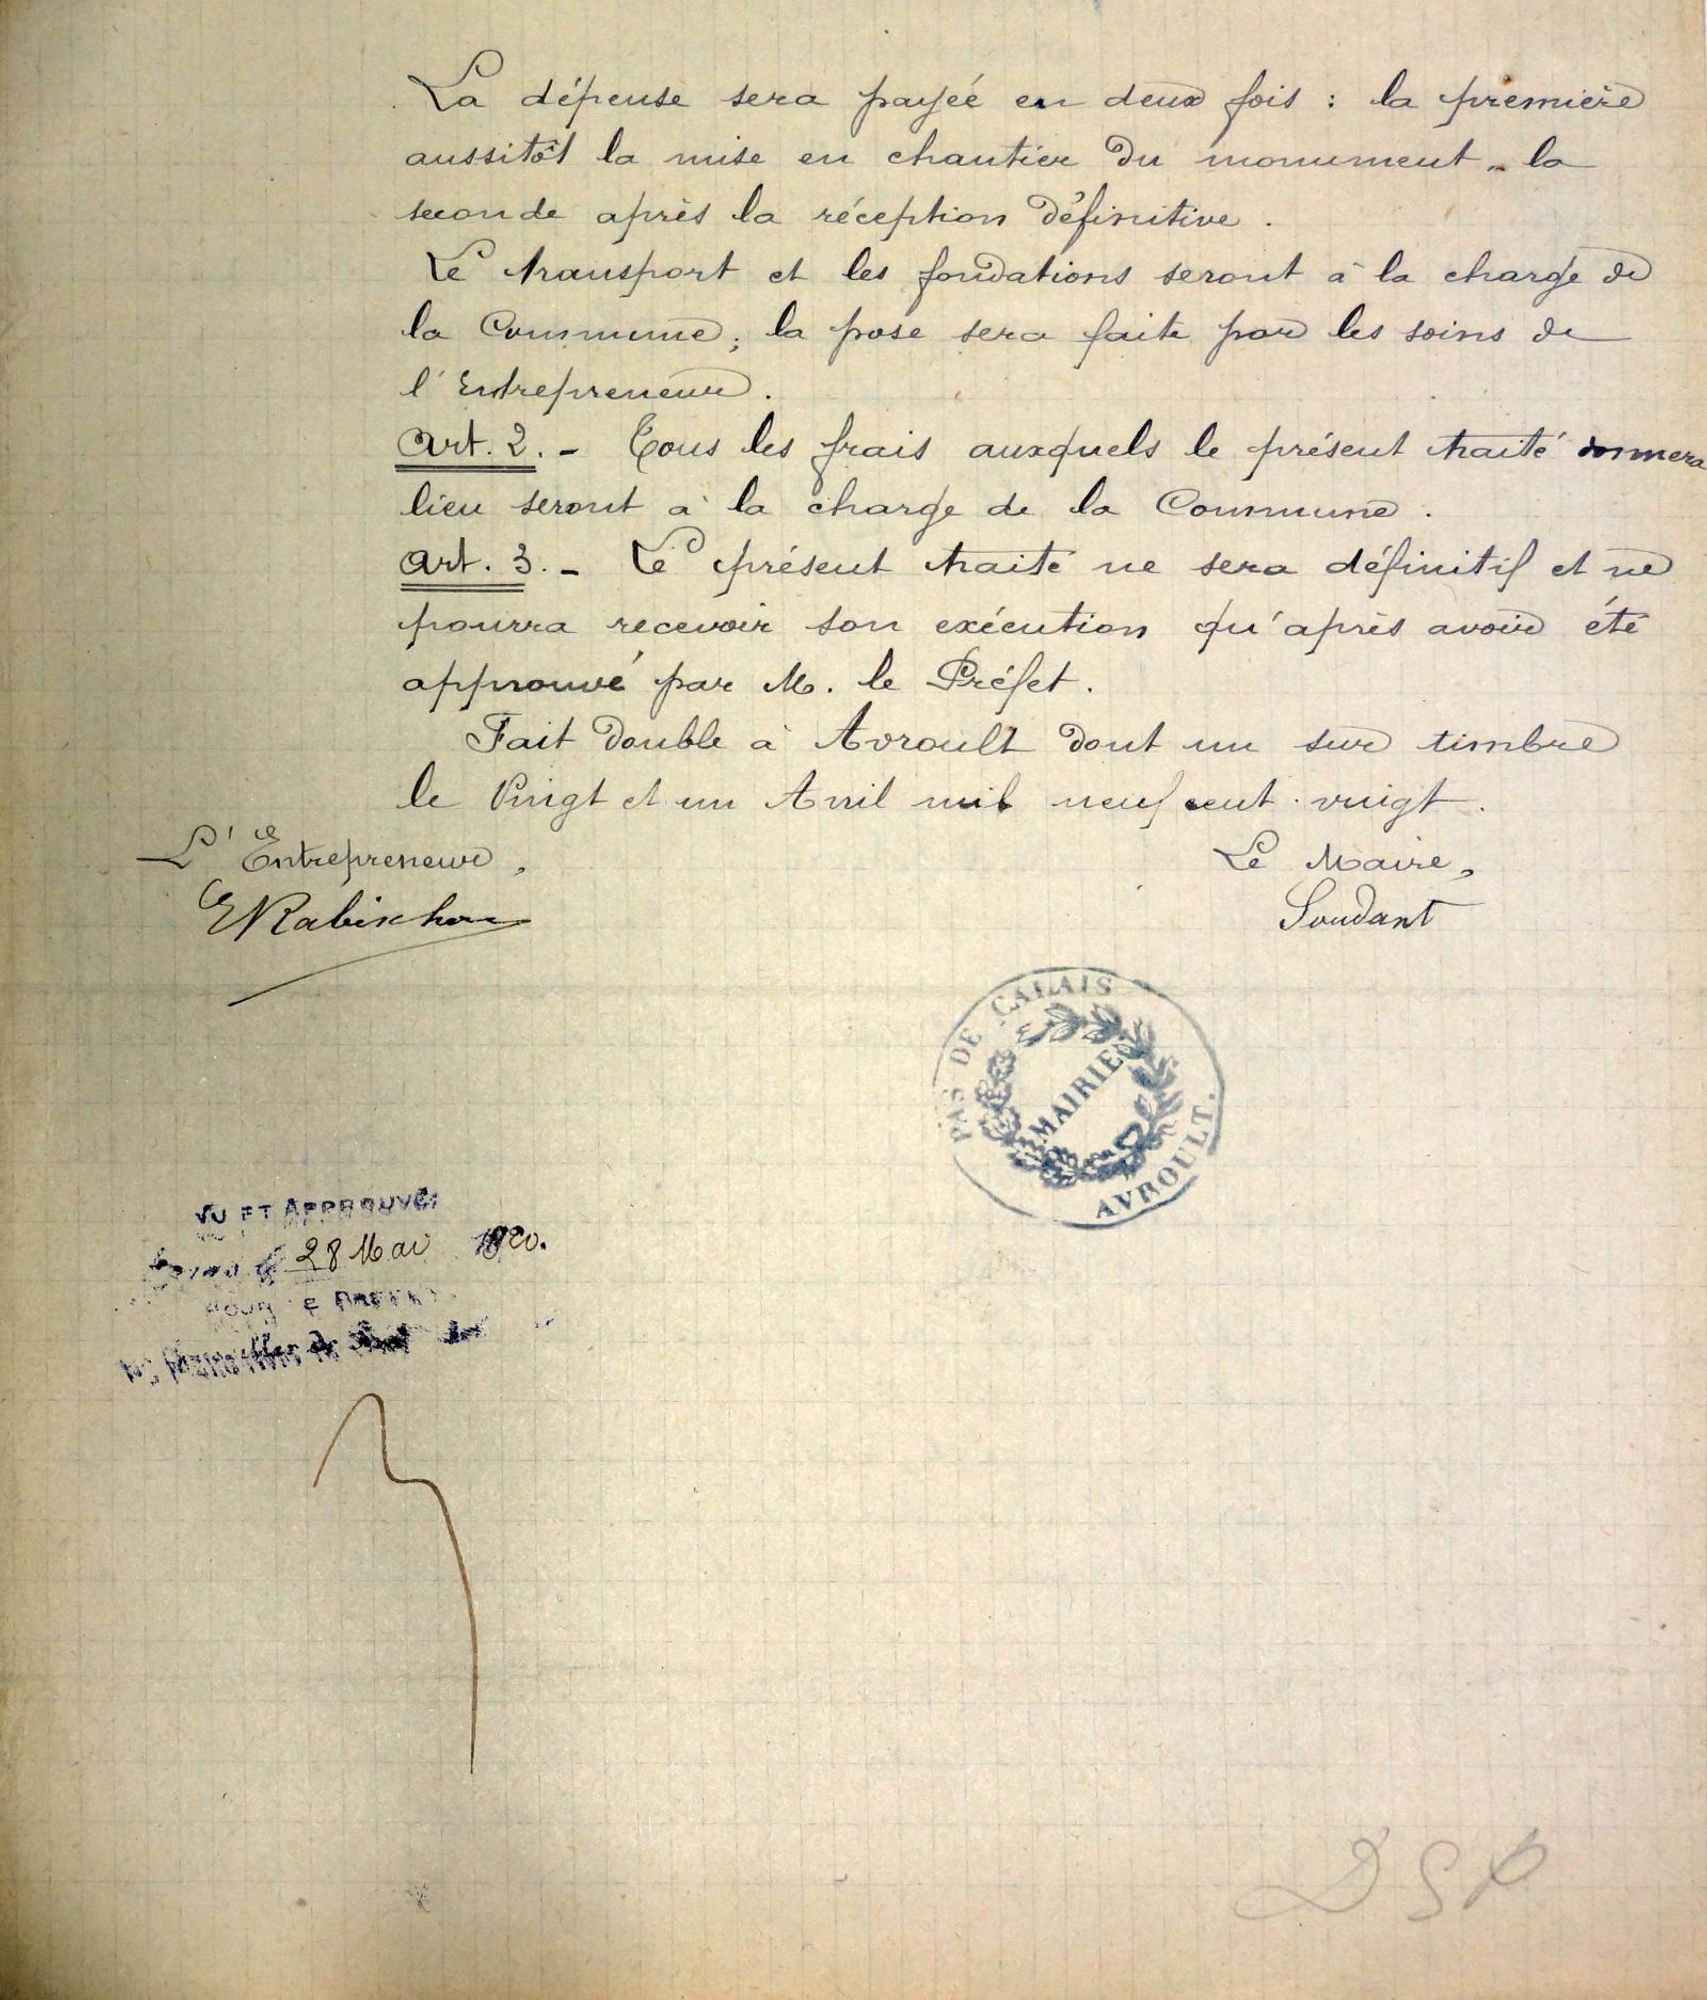 La dépense sera payée en deux fois : la première
aussitôt la mise en chantier du monument, la
seconde après la réception définitive.
Le transport et les fondations seront à la charge de
la Commune ; la pose sera faite par les soins de
l'Entrepreneur.
Art. 2. - Tous les frais auxquels le présent traité donnera
lieu seront à la charge de la Commune.
Art. 3. - Le présent traité ne sera définitif et ne
pourra recevoir son exécution qu'après avoir été
approuvé par M. le Préfet.
Fait double à Avroult dont un sur timbre
le Vingt et un Avril mil neuf cent vingt.
L'Entrepreneur,
Le Maire,
Soudant
PAS DE CALAIS
MAIRIE
AVROULT.
VU ET APPROUVÉ:
28 Mai 1920.
POUR LE PREFET
DSP